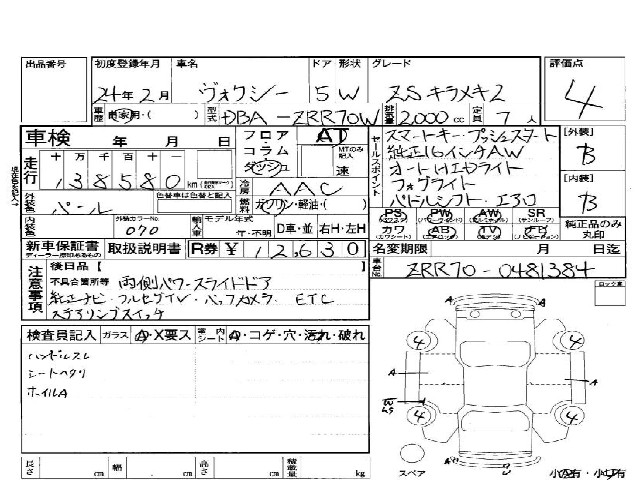 出品番号 初度登録年月 車名 ドア 形状 グレード 評価点
24年2月 ヴォクシー 5 W ZS キラメキ2 4
車歴 自家用・( ) 型式 DBA-ZRR70W 排気量 2000cc 定員 7人
車検 年 月 日 フロア AT
コラム MTのみ記入
ダッシュ 速
セールスポイント スマートキー・プッシュスタート
純正16インチAW
オートHIDライト
フォグライト
パドルシフト・エアロ
[外装] B
[内装] B
走行 十 万 千 百 十 一
138580 km
冷房 AAC
外装色 パール 色替車は色替と記入
燃料 ガソリン・軽油・( )
内装色 外装カラーNo. 070 輸入車 モデル年式 年・不明 D車・並 右H・左H
PS PW AW SR
カワ AB TV
純正品のみ丸印
新車保証書 取扱説明書 R券 ¥ 12630
ディーラー捺印有るもの
名変期限 月 日迄
車台No. ZRR70-0481384
注意事項 後日品【 】
不具合箇所等 両側パワースライドドア
純正ナビ・フルセグTV・バックカメラ ETC
ステアリングスイッチ
検査員記入 ガラス A・X要ス 室内シート A・コゲ・穴・汚れ・破れ
ハンドルスレ
シートヘタリ
ホイルA
長さ cm 幅 cm 高さ cm 積載量 kg
A
4 4
A A
W
4 4
A
スペア